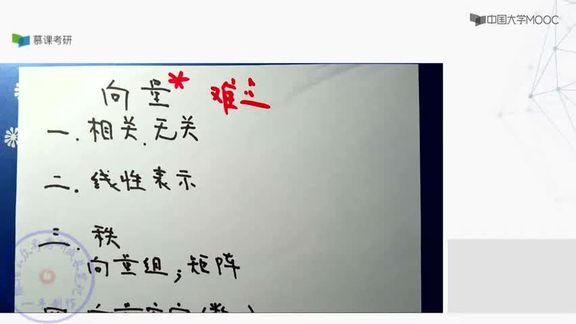 慕课考研
中国大学MOOC
向量* 难
一.相关.无关
二.线性表示
三.秩
向量组;矩阵